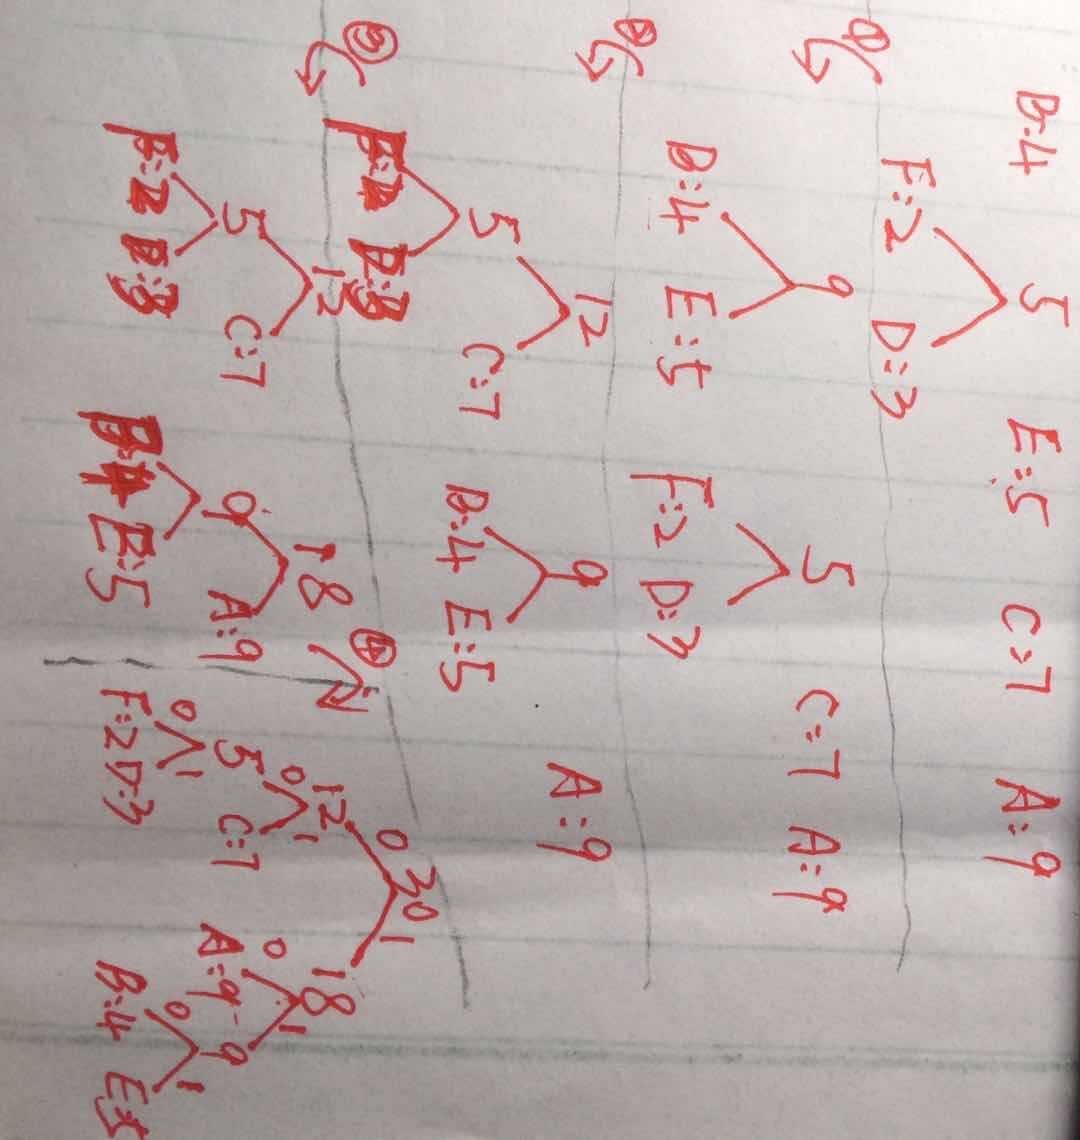 B:4 5 E:5 C:7 A:9
F:2 D:3
①
9 5 C:7 A:9
B:4 E:5 F:2 D:3
②
12 9 A:9
5 C:7 B:4 E:5
F:2 D:3
③
12 18 ④
5 C:7 9 A:9
F:2 D:3 B:4 E:5
30
0 1
12 18
0 1 0 1
5 C:7 A:9 9
0 1 0 1
F:2 D:3 B:4 E:5